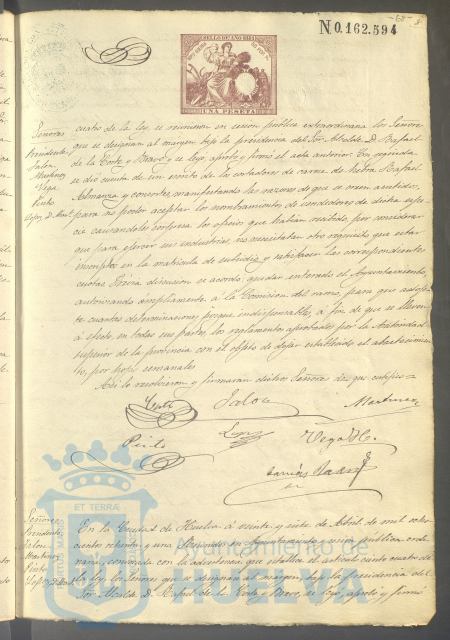 N 0.162.594
SELLO DE AÑO
UNA PESETA
Señores
Presidente
Jalon
Martinez
Vega
Pinto
Lopez, D. Man.l
cuatro de la ley, se reunieron en sesion pública extraordinaria los Señores
que se designan al margen bajo la presidencia del Sor. Alcalde D. Rafael
de la Corte y Bravo, y se leyó, aprobó y firmó el acta anterior. En seguida
se dió cuenta de un escrito de los cortadores de carne de hebra Rafael
Almanza y consortes, manifestando las razones de que se creen asistidos
para no poder aceptar los nombramientos de vendedores de dicha espe-
cie causandoles sorpresa los oficios que habian recibido, por considerar
que para ejercer sus industrias, no necesitaban otro requisito que estar
inscriptos en la matricula de subsidio y satisfacer las correspondientes
cuotas. Previa discusion se acordó, quedar enterado el Ayuntamiento,
autorizando ampliamente á la Comision del ramo, para que adop-
te cuantas determinaciones juzgue indispensables, á fin de que se lleven
á efecto, en todas sus partes, los reglamentos aprobados por la Autoridad
superior de la provincia con el objeto de dejar establecido el abastecimien-
to, por semanales
Asi lo resolvieron y firmaran dichos Señores de que certifico =
Corte Jalon Martinez
Pinto Lopez Vega
Señores
Presidente
Jalon
Martinez
Pinto
Lopez, D. Man.l
En la Ciudad de Huelva á veinte y siete de Abril de mil ocho-
cientos ochenta y uno. Reunido su Ayuntamiento en sesion publica ordi-
naria, convocada con la advertencia que establece el articulo ciento cuatro de
la ley los Señores que se designan al margen, bajo la presidencia del
Sor. Alcalde D. Rafael de la Corte y Bravo, se leyó, aprobó y firmó
ET TERRAE
Ayuntamiento de
HUELVA